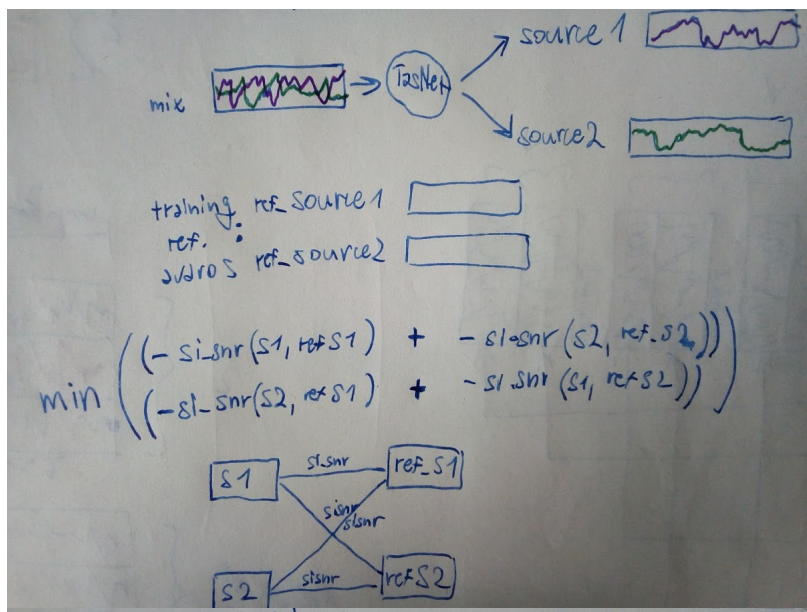 source 1
mix
TasNet
source2
training ref_source1
ref. :
audios ref_source2
min ((- si_snr(S1, ref S1) + - si.snr(S2, ref_S2))
(-si_snr(S2, ref S1) + - si.snr (S1, ref S2)))
S1 si_snr ref_S1
sisnr
sisnr
S2 sisnr ref S2